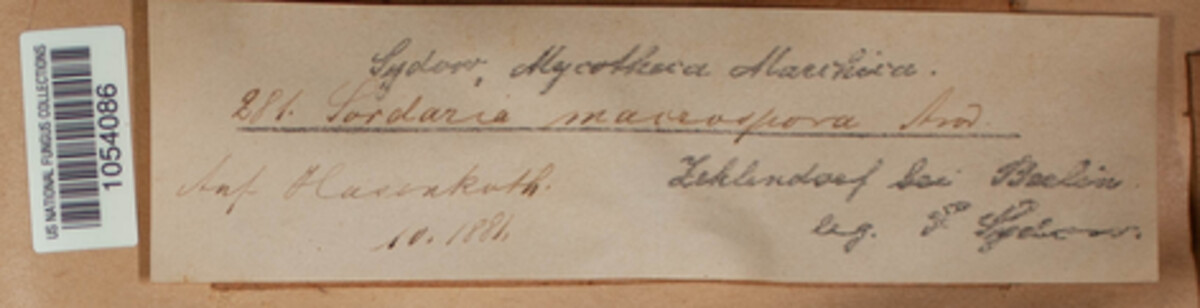 US NATIONAL FUNGUS COLLECTIONS
1054086
Sydow, Mycotheca Marchica.
281. Sordaria macrospora Awd.
Auf Hasenkoth. Zehlendorf bei Berlin.
10. 1881. leg. P. Sydow.